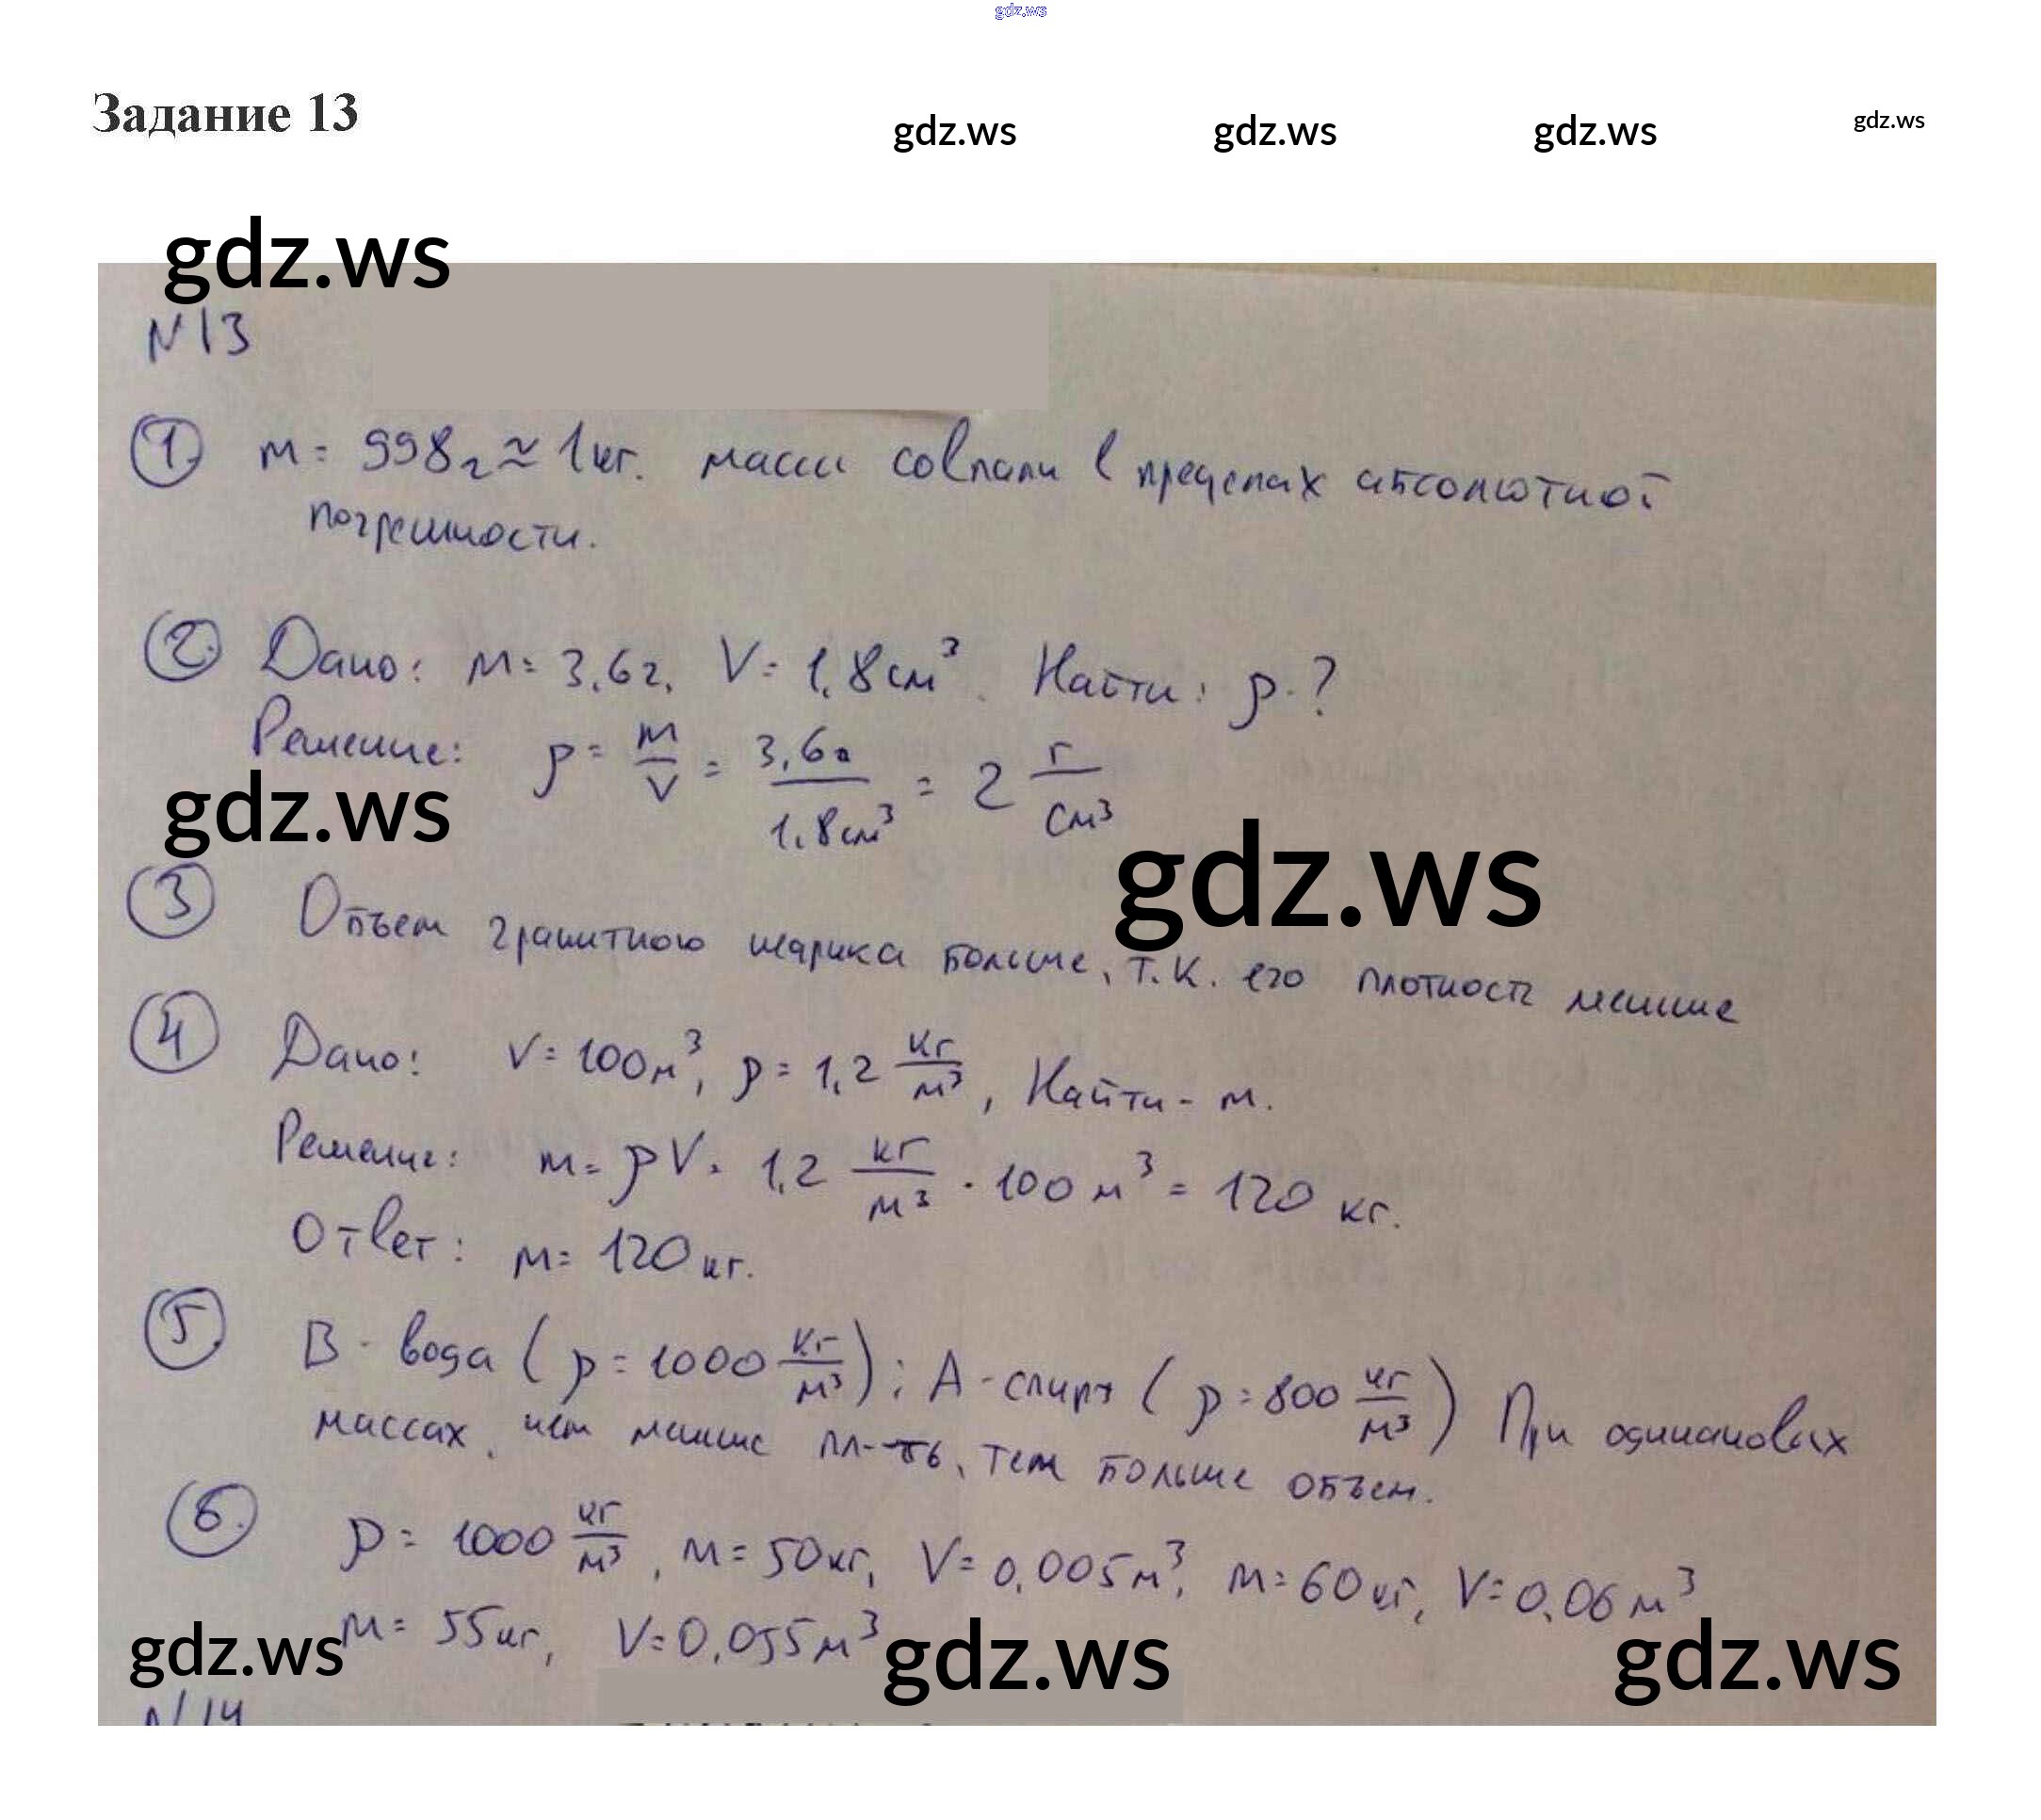 gdz.ws
Задание 13
gdz.ws gdz.ws gdz.ws gdz.ws
gdz.ws
N13
1. m = 998г ≈ 1кг. массы совпали в пределах абсолютной
погрешности.
2. Дано: m = 3,6г, V = 1,8см³. Найти: ρ-?
Решение: ρ = m/V = 3,6г/1,8см³ = 2 г/см³
gdz.ws
gdz.ws
3 Объем гранитного шарика больше, т.к. его плотность меньше
4 Дано: V = 100м³, ρ = 1,2 кг/м³, Найти - m.
Решение: m = ρV = 1,2 кг/м³ · 100 м³ = 120 кг.
Ответ: m = 120 кг.
5. В - вода (ρ = 1000 кг/м³); А - спирт (ρ = 800 кг/м³) При одинаковых
массах, чем меньше пл-ть, тем больше объем.
6. ρ = 1000 кг/м³, m = 50кг, V = 0,005м³, m = 60кг, V = 0,06м³
m = 55кг, V = 0,055м³
gdz.ws gdz.ws gdz.ws
N14